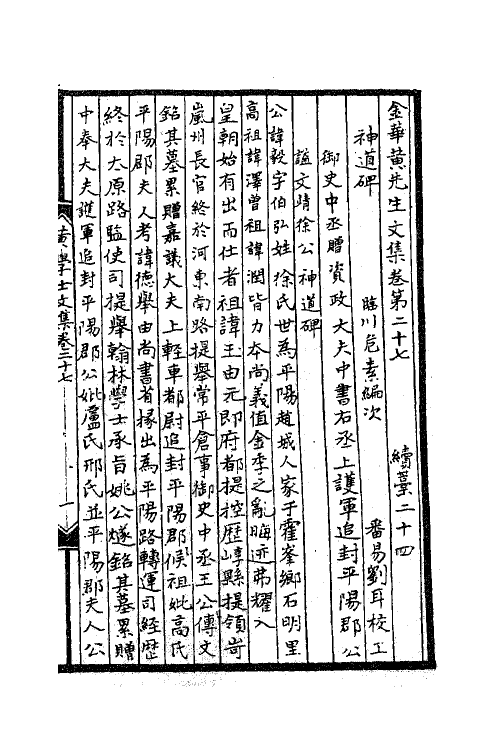 金華黃先生文集卷第二十七　續藁二十四
神道碑　臨川危素編次　番易劉耳校正
御史中丞贈資政大夫中書右丞上護軍追封平陽郡公
謚文靖徐公神道碑
公諱毅字伯弘姓徐氏世為平陽趙城人家于霍峯鄉石明里
高祖諱澤曾祖諱潤皆力本尚義值金季之亂晦迹弗耀入
皇朝始有出而仕者祖諱玉由元帥府都提控歷崞縣提領岢
嵐州長官終於河東南路提舉常平倉事御史中丞王公傳文
銘其墓累贈嘉議大夫上輕車都尉追封平陽郡侯祖妣高氏
平陽郡夫人考諱德舉由尚書省掾出為平陽路轉運司經歷
終於太原路監使司提舉翰林學士承旨姚公燧銘其墓累贈
中奉大夫護軍追封平陽郡公妣盧氏邢氏並平陽郡夫人公
黃學士文集卷二十七　一